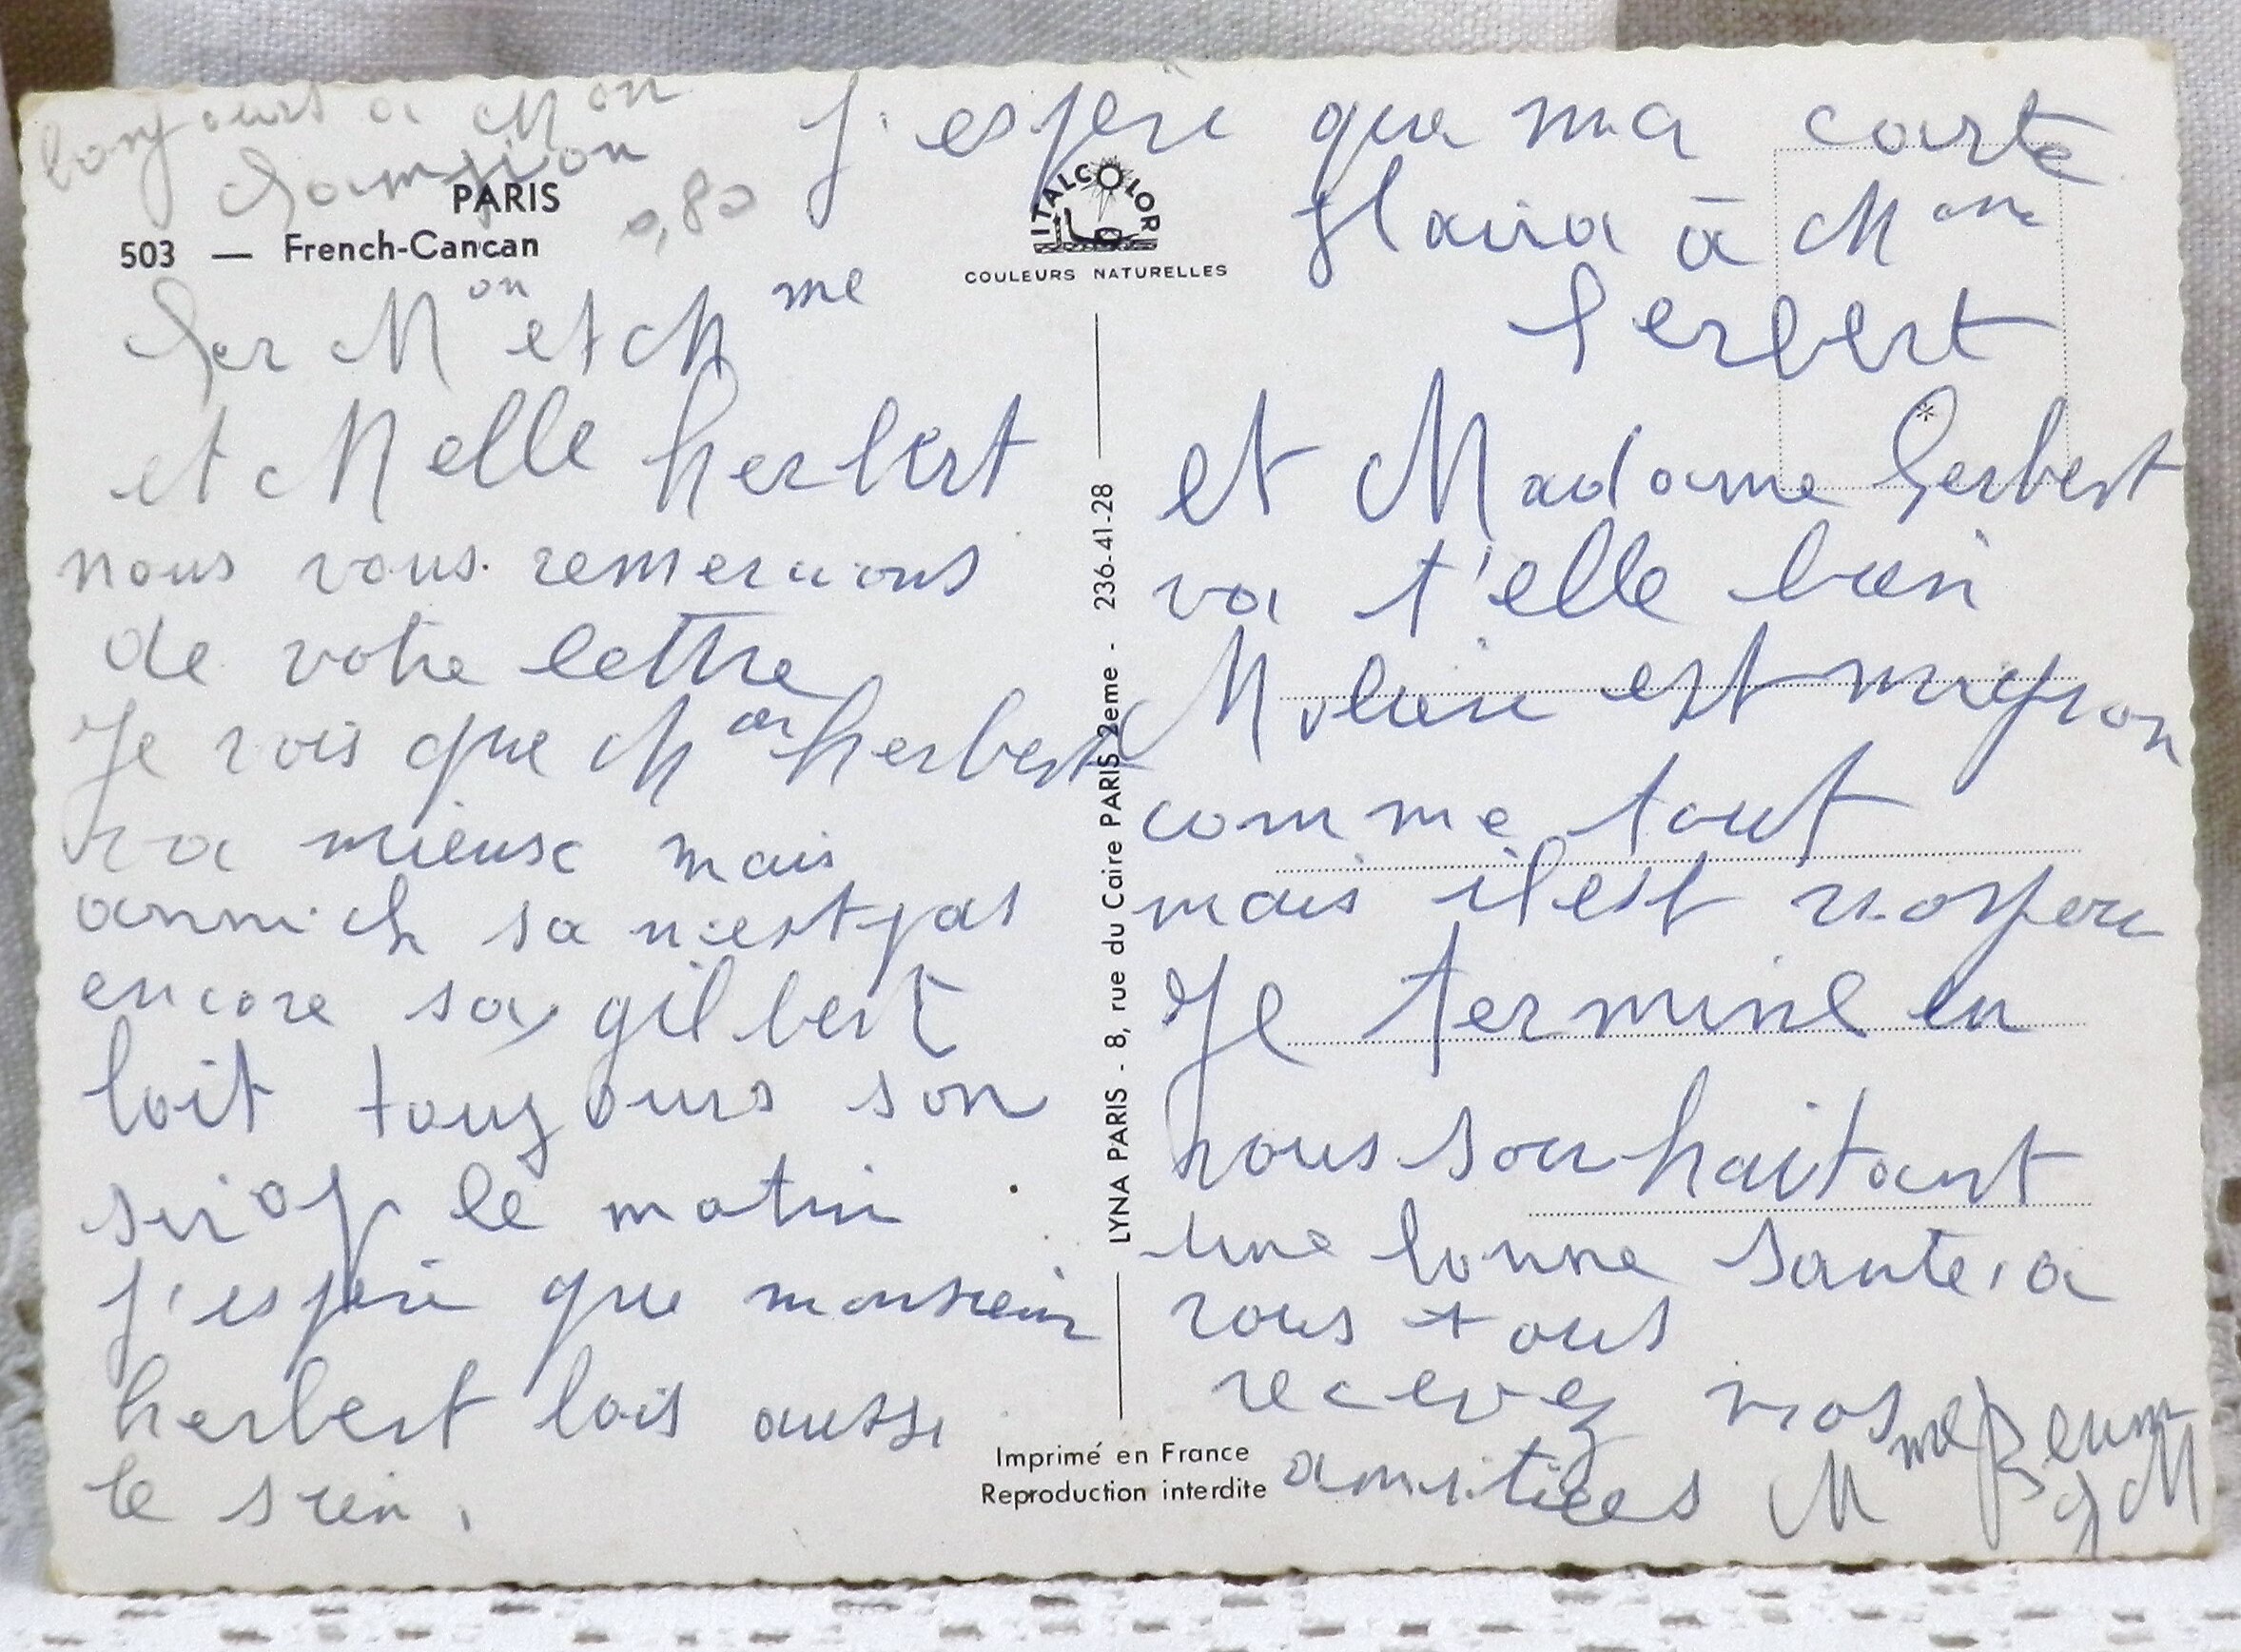 bonjours a Mon
Champion
PARIS
0,80
503 — French-Cancan
Cher Mon et Mme
et Melle herbert
nous vous remercions
de votre lettre
Je vois que Mon herbert
va mieux mais
sa n'est pas
encore sa gilbert
boit toujours son
sirop le matin
j'espère que monsieur
herbert bois aussi
le sien.
ITALCOLOR
COULEURS NATURELLES
LYNA PARIS - 8, rue du Caire PARIS 2eme - 236-41-28
Imprimé en France
Reproduction interdite
j'espère que ma carte
plaira à Mon
herbert
et Madame herbert
va t'elle bien
est mignon
comme tout
mais il est
Je termine en
vous souhaitant
une bonne santé a
vous tous
recevez nos
amitiées M
Mme